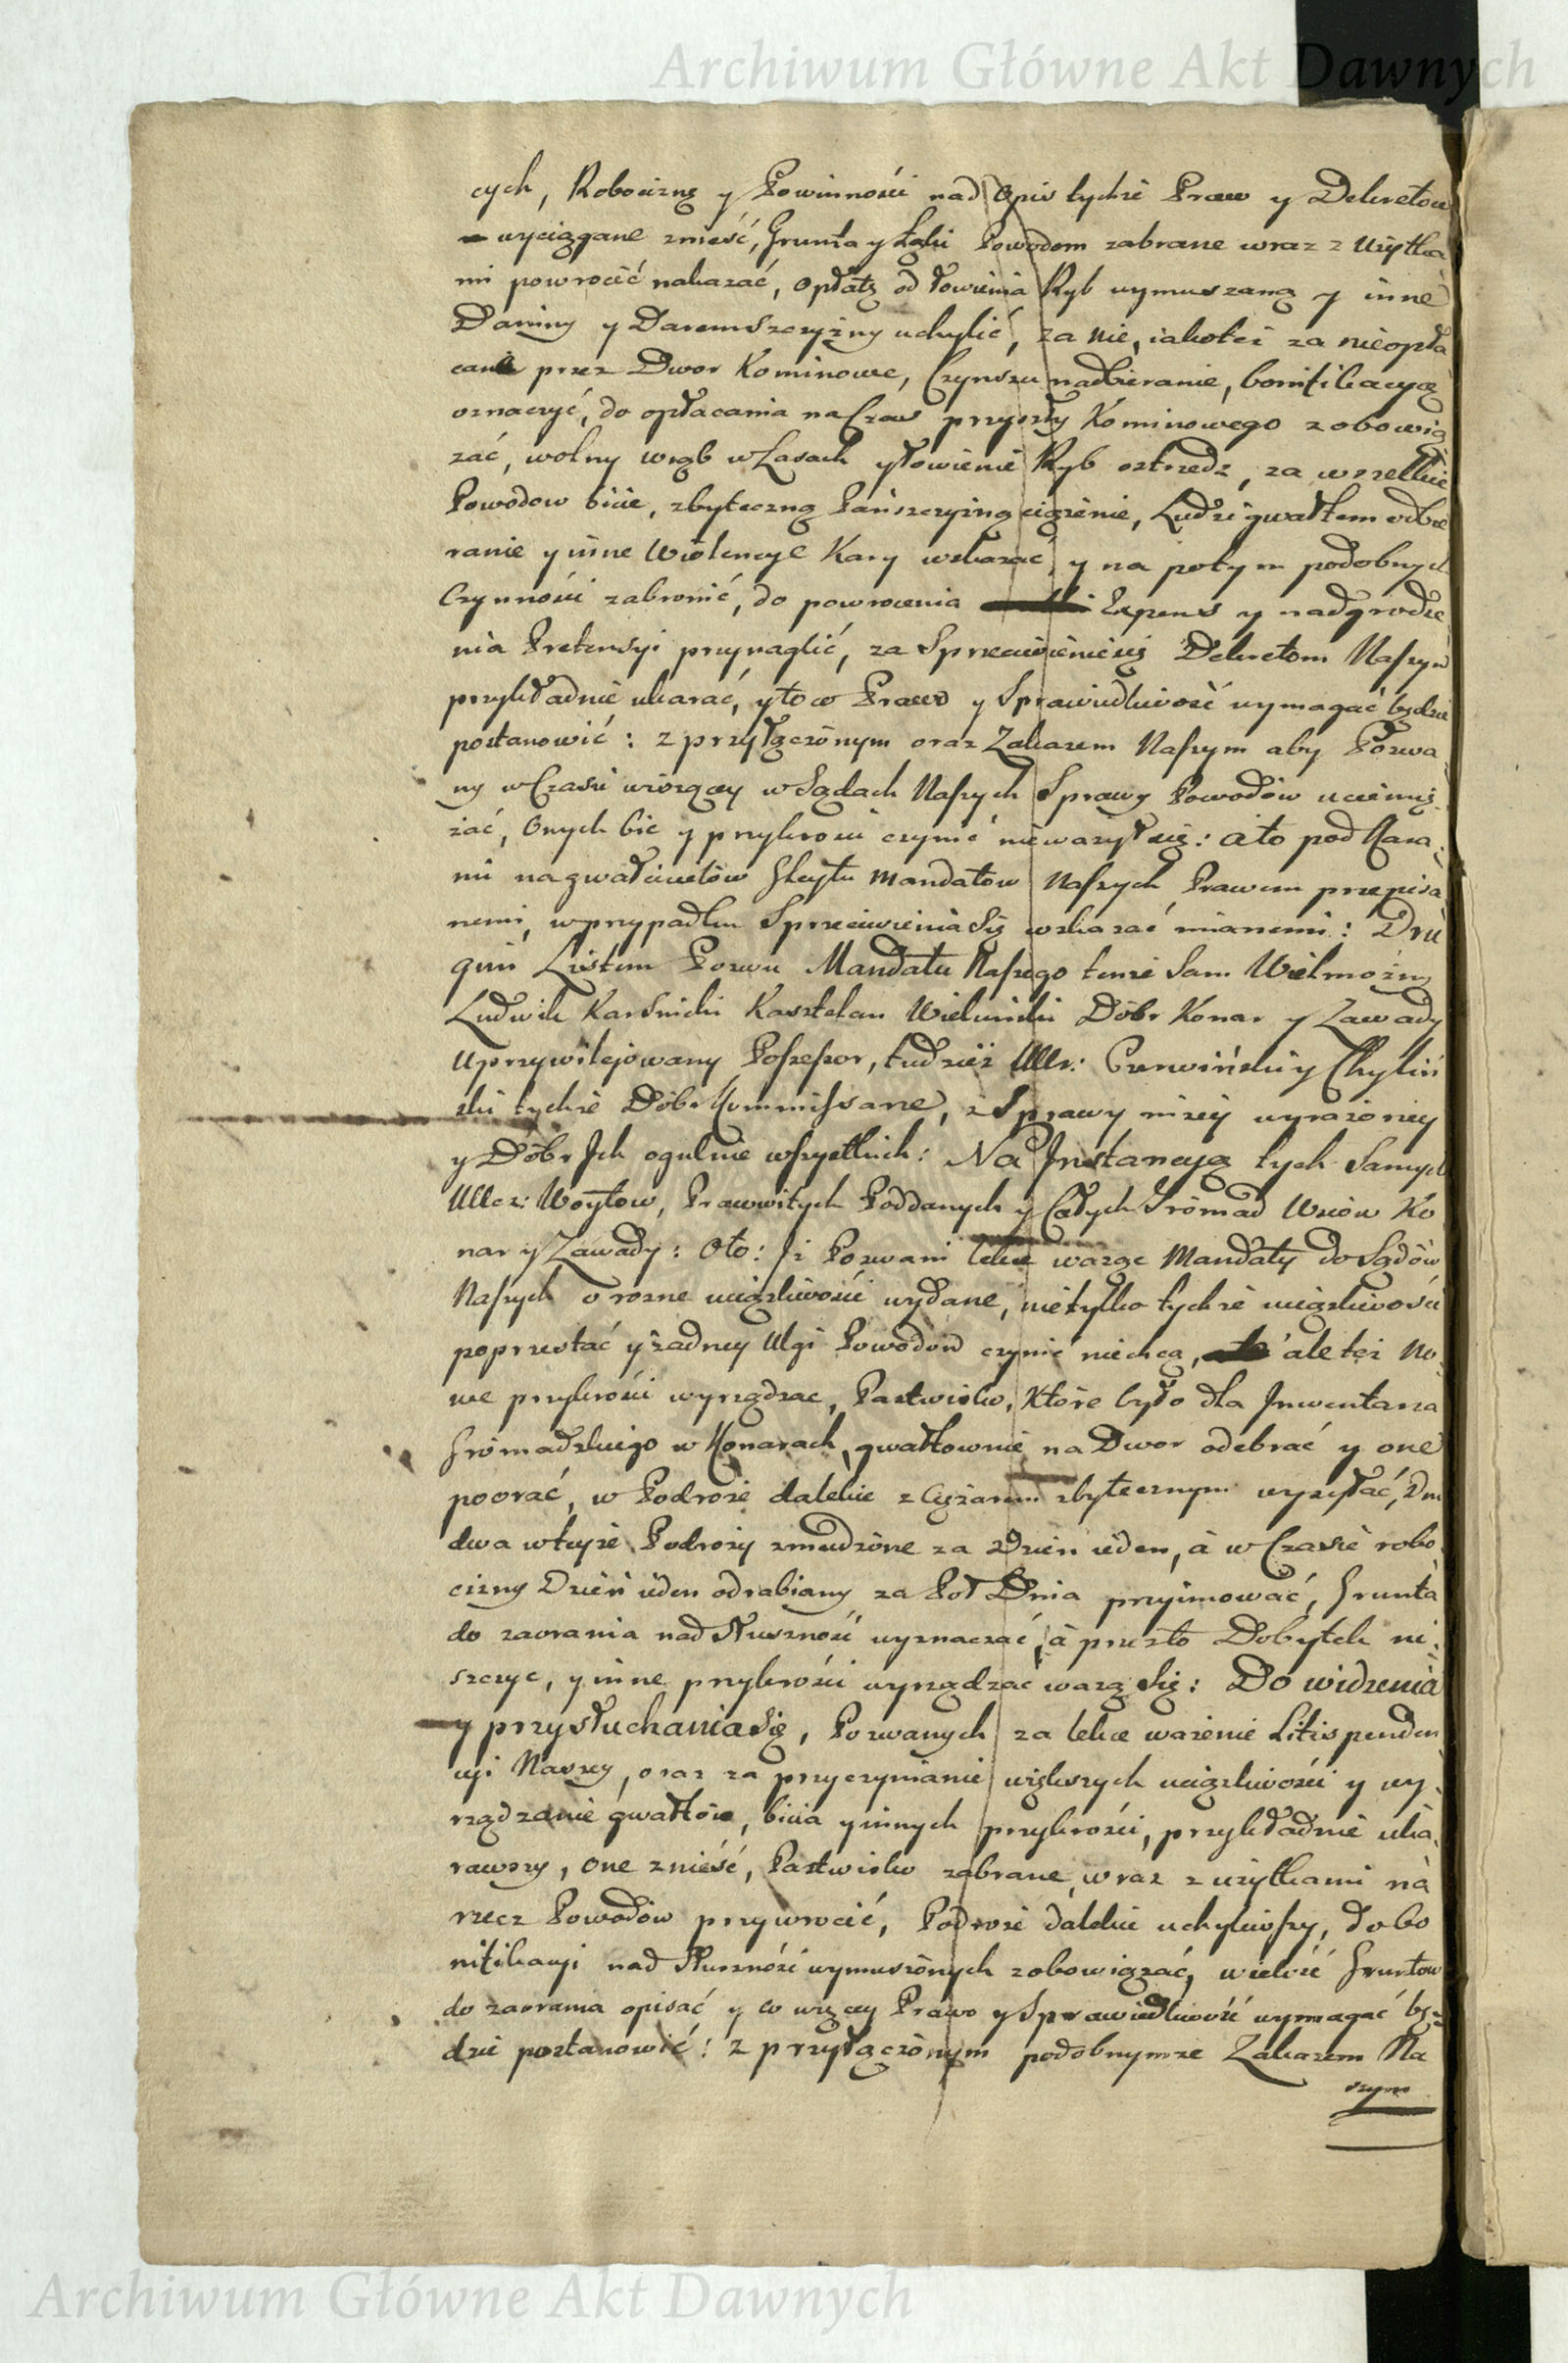 Archiwum Główne Akt Dawnych
cych, Robociznę y Powinności nad Opis tychże Praw y Dekretow
wyciągane znieść, Grunta y Łąki Powodom zabrane wraz z Użytka
mi powrocić nakazać, Opłatę od łowienia Ryb wymuszaną y inne
Daniny y Daremszczyzny uchylić, za nie, iakoteż za nieopła
canie przez Dwor Kominowe, Czynszu nadbieranie, bonifikacyą
oznaczyć, do opłacania na Czas przyszły Kominowego zobowią
zać, wolny wrąb w Lasach y łowienie Ryb ostrzedz, za wszelkie
Powodow bicie, zbyteczną Pańszczyzną ciążenie, Ludzi gwałtem odbie
ranie y inne Wiolencye Kary wskazać, y na potym podobnych
Czynności zabronić, do powrocenia Expens y nadgrodze
nia Pretensyi przynaglić, za Sprzeciwienie się Dekretom Naszym
przykładnie ukarać, y to co Prawo y Sprawiedliwość wymagać będzie
postanowić: z przyłączonym oraz Zakazem Naszym aby Pozwa
ny w Czasie wiszący w Sądach Naszych Sprawy Powodów uciemię
żać, Onych bić y przykrości czynić nieważył się: a to pod Kara
mi na gwałcicielów Gleytu Mandatow Naszych Prawem przepisa
nemi, w przypadku Sprzeciwienia się wskazać mianemi: Dru
gim Listem Pozwu Mandatu Naszego tenże Sam Wielmożny
Ludwik Karśnicki Kasztelan Wieluński Dóbr Konar y Zawady
Uprzywilejowany Possessor, tudzież Ur: Czerwiński y Chyliń
ski tychże Dóbr Kommissarze, z Sprawy niżey wyrażoney
y Dóbr Ich ogulnie wszystkich: Na Instancyą tych Samych
Woytow, Prawwitych Poddanych y Całych Gromad Wsiów Ko
nar y Zawady: Oto: Iż Pozwani lekce ważąc Mandaty do Sądów
Naszych o rozne uciążliwości wydane, nietylko tychże uciążliwości
poprzestać y żadney Ulgi Powodom czynić niechcą, ale też No
we przykrości wyrządzac, Pastwisko, Które było dla Inwentarza
Gromadzkiego w Konarach, gwałtownie na Dwor odebrać y one
poorać, w Podroże dalekie z Ciężarem zbytecznym wysyłać, Dni
dwa w teyże Podroży zmudzone za Dzień ieden, à w Czasie robo
cizny Dzień ieden odrabiany za Poł Dnia przyimować, Grunta
do zaorania nad Słuszność wyznaczać, à przezto Dobytek ni
szczyc, y inne przykrości wyrządzać ważą się: Do widzenia
y przysłuchania się, Pozwanych za lekce ważenie Litispenden
cyi Naszey, oraz za przyczynianie większych uciążliwości y wy
rządzanie gwałtów, bicia y innych przykrości, przykładnie uka
rawszy, one znieść, Pastwisko zabrane, wraz z użytkami na
rzecz Powodów przywrocić, Podroże dalekie uchyliwszy, do bo
nifikacyi nad Słuszność wymuszonych zobowiązać, wielość Gruntow
do zaorania opisać y co więcey Prawo y Sprawiedliwość wymagać bę
dzie postanowić: z przyłączonym podobnymże Zakazem Na
szym
Archiwum Główne Akt Dawnych